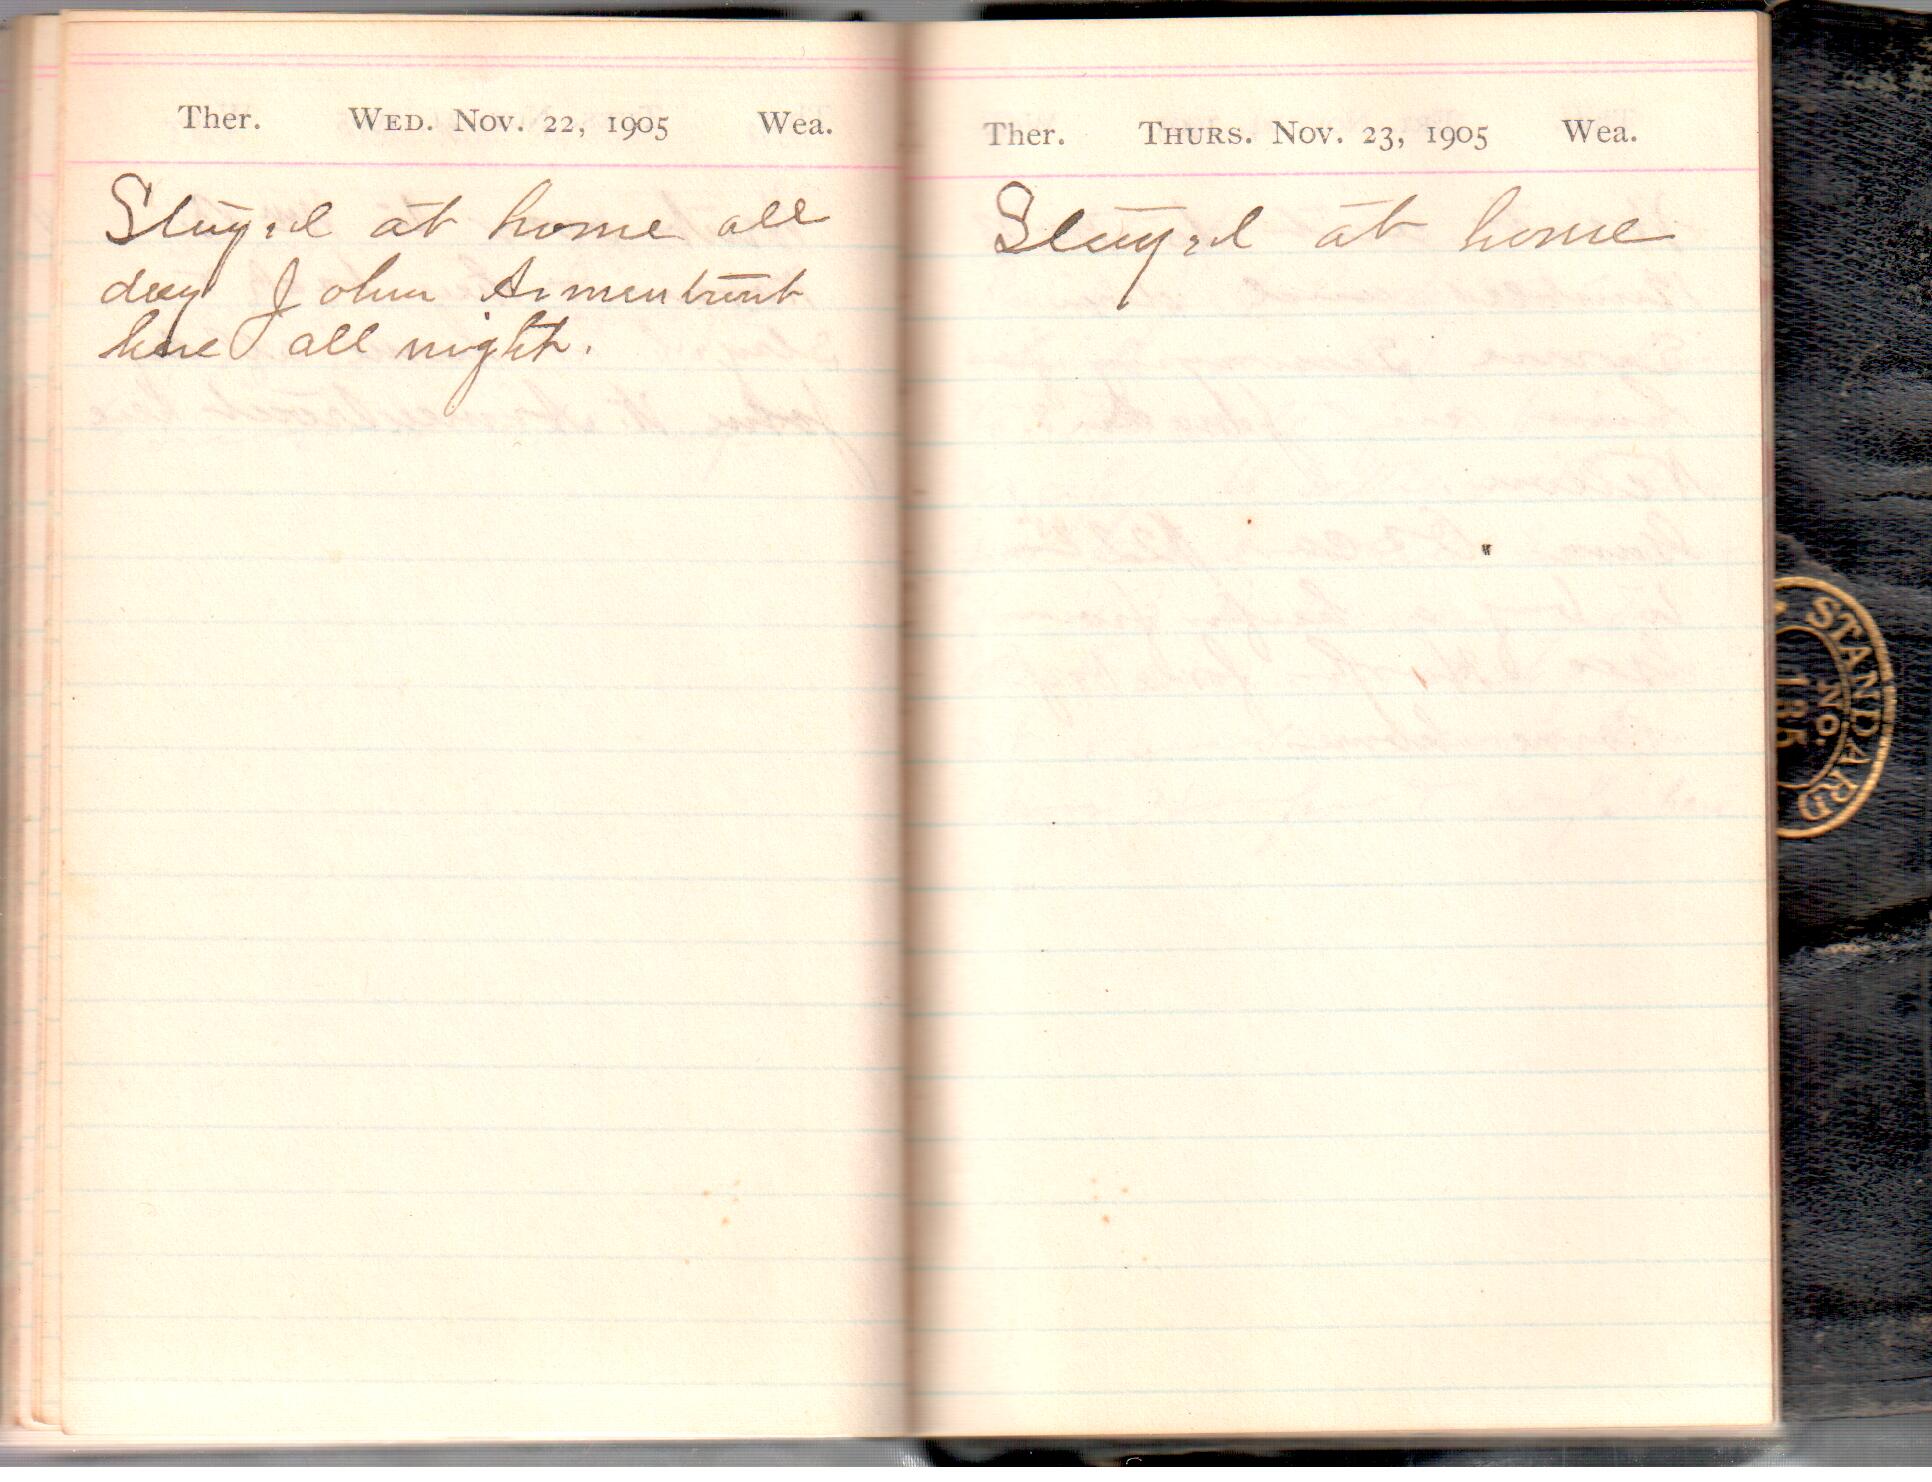 Ther. WED. NOV. 22, 1905 Wea.
Stayed at home all
day John Armentrout
here all night.
Ther. THURS. NOV. 23, 1905 Wea.
Stayed at home
STANDARD
NO.